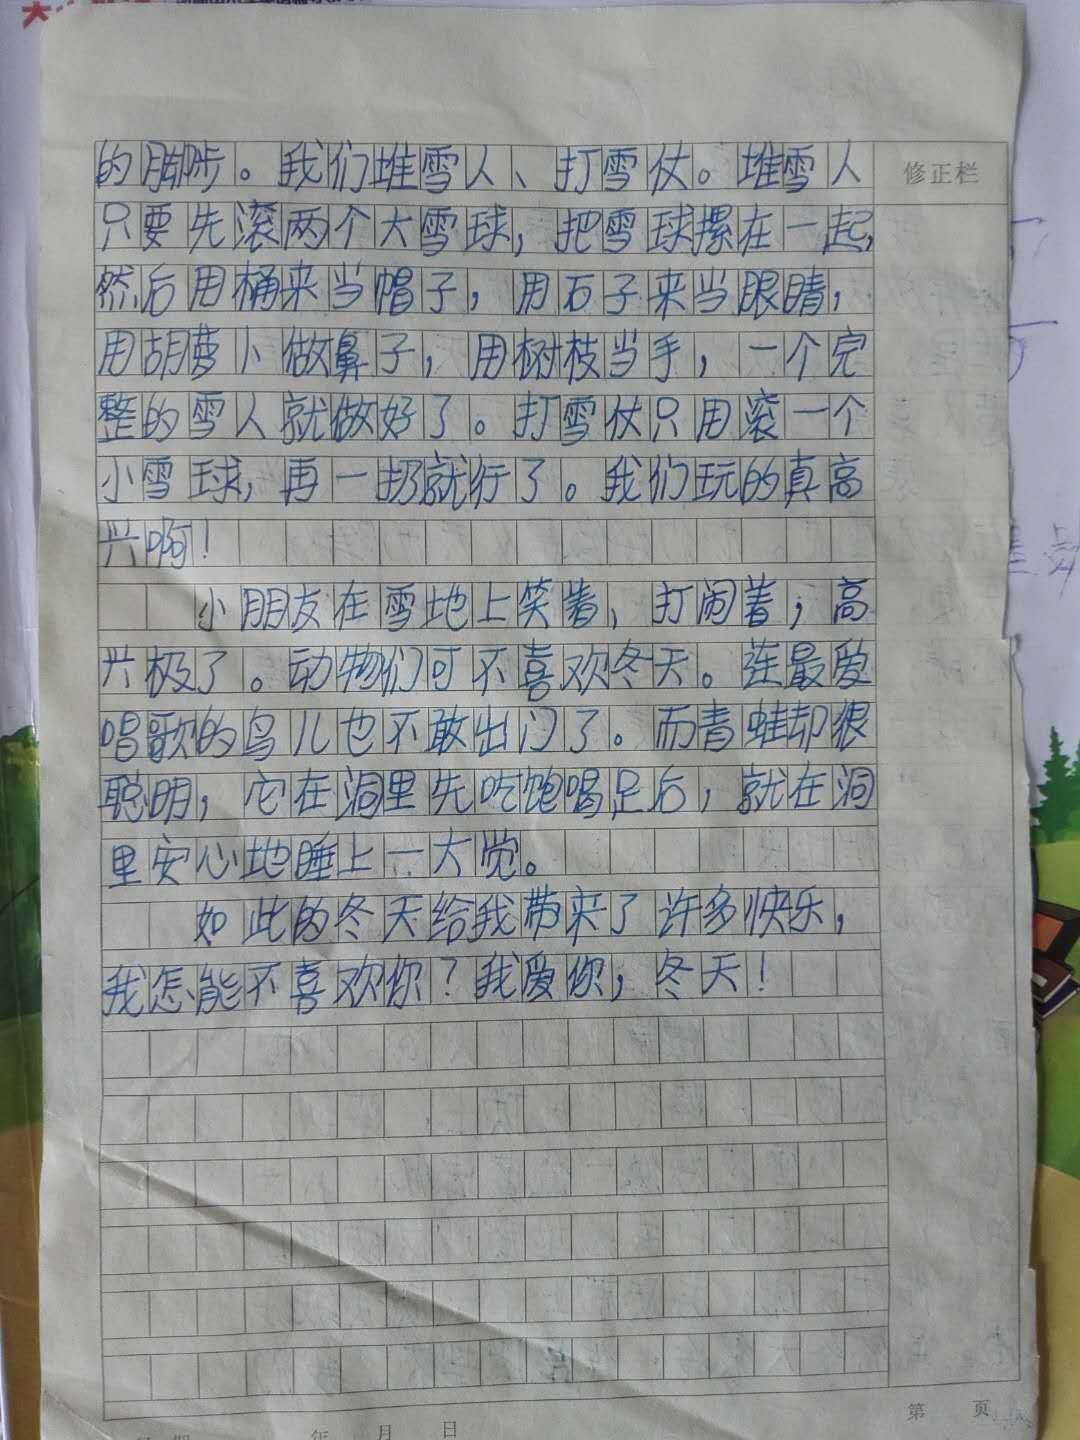 的脚步。我们堆雪人、打雪仗。堆雪人
修正栏
只要先滚两个大雪球，把雪球摞在一起，
然后用桶来当帽子，用石子来当眼睛，
用胡萝卜做鼻子，用树枝当手，一个完
整的雪人就做好了。打雪仗只用滚一个
小雪球，再一扔就行了。我们玩的真高
兴啊！
小朋友在雪地上笑着，打闹着，高
兴极了。动物们可不喜欢冬天。连最爱
唱歌的鸟儿也不敢出门了。而青蛙却很
聪明，它在洞里先吃饱喝足后，就在洞
里安心地睡上一大觉。
如此的冬天给我带来了许多快乐，
我怎能不喜欢你？我爱你，冬天！
第 页
年 月 日